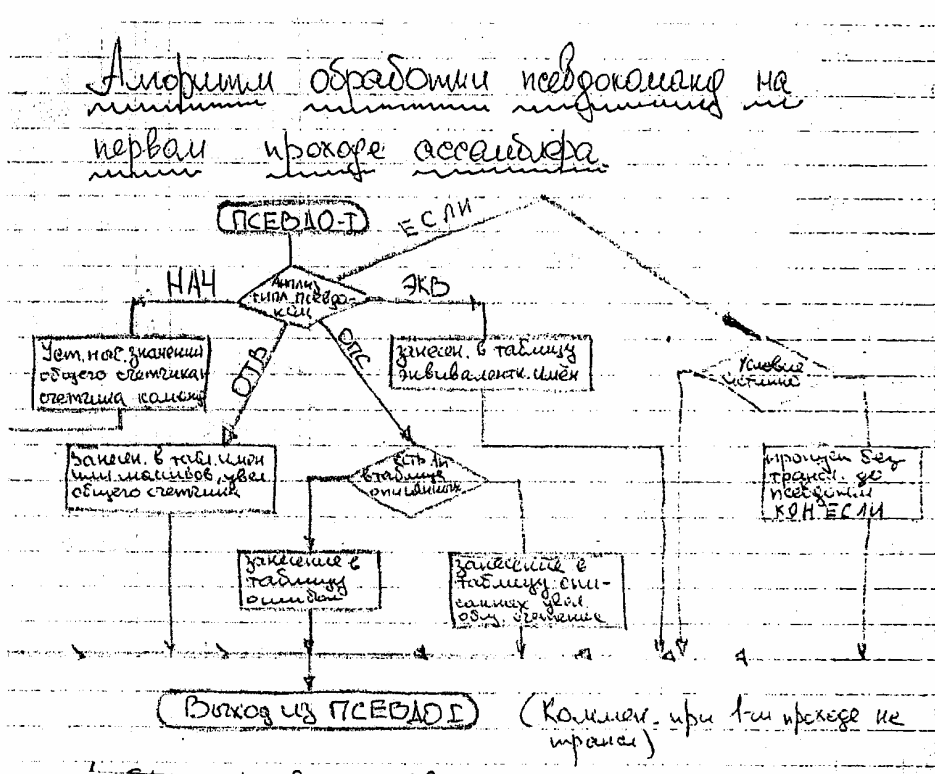 Алгоритм обработки псевдокоманд на
первом проходе ассамблера.
ПСЕВДО-I
ЕСЛИ
НАЧ
Анализ
типа псевдо-
ком
ЭКВ
ОТВ
ОПС
Уст. нов. значений
общего счетчика и
счетчика команд
занесен. в таблицу
эквивалентн. имён
Условие
истинно
занесен. в табл. имен
или массивов, увел.
общего счетчика
есть ли
в таблице
описанных
пропуск без
трансл. до
псевдоком
КОН ЕСЛИ
занесение в
таблицу
ошибок
занесение в
таблицу опи-
санных увел.
общ. счетчика
Выход из ПСЕВДО I
(Коммен. при 1-м проходе не
трансл)